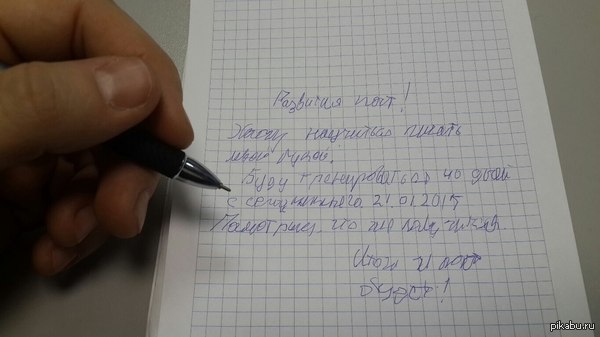 Развития пост!
Хочу научиться писать
левой рукой.
Буду тренироваться 40 дней
с сегодняшнего 21.01.2015
Посмотрим что же получится.
Итог и пост
будет!
pikabu.ru